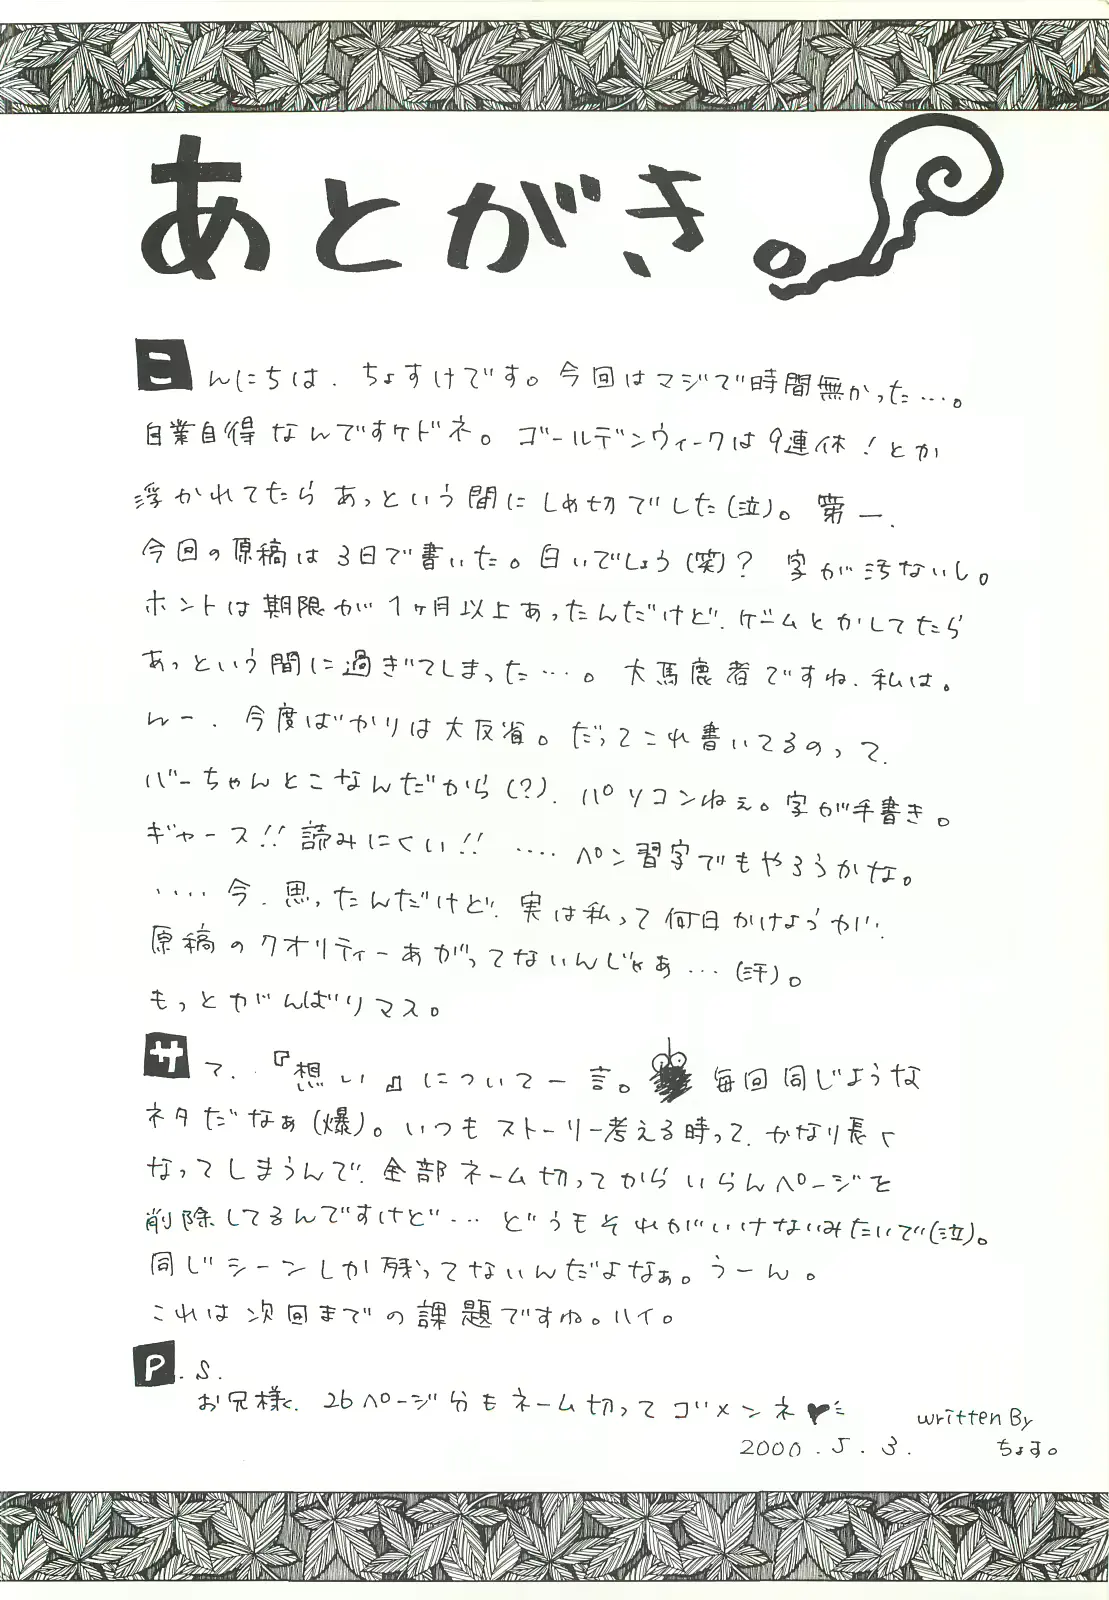 あとがき。
こんにちは、ちょすけです。今回はマジで時間無かった…。
自業自得なんですケドネ。ゴールデンウィークは9連休!とか
浮かれてたらあっという間にしめ切でした(泣)。第一、
今回の原稿は3日で書いた。白いでしょう(笑)? 字が汚ないし。
ホントは期限が1ヶ月以上あったんだけど、ゲームとかしてたら
あっという間に過ぎてしまった…。大馬鹿者ですね、私は。
んー、今度ばかりは大反省。だってこれ書いてるのって、
バーちゃんとこなんだから(?)、パソコンねぇ。字が手書き。
ギャース!!読みにくい!! ‥‥ペン習字でもやろうかな。
‥‥今、思ったんだけど、実は私って何日かけようが、
原稿のクオリティーあがってないんじゃあ…(汗)。
もっとがんばりマス。
サて、『想い』について一言。毎回同じような
ネタだなぁ(爆)。いつもストーリー考える時って、かなり長く
なってしまうんで、全部ネーム切ってからいらんページを
削除してるんですけど…どうもそれがいけないみたいで(泣)。
同じシーンしか残ってないんだよなぁ。うーん。
これは次回までの課題ですね。ハイ。
P.S.
お兄様、26ページ分もネーム切ってゴメンネ♥
written By
2000.5.3. ちょす。